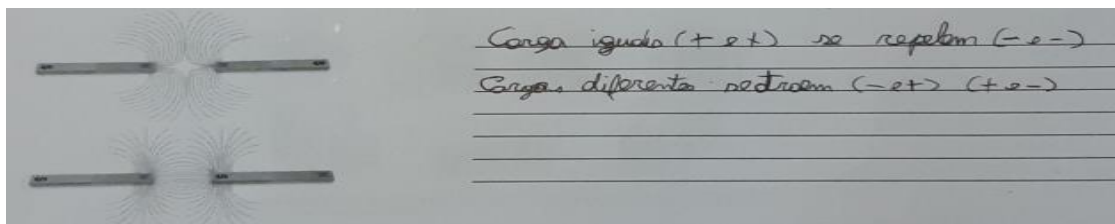 Carga iguais (+ e +) se repelem (- e -)
Cargas diferentes se atraem (- e +) (+ e -)